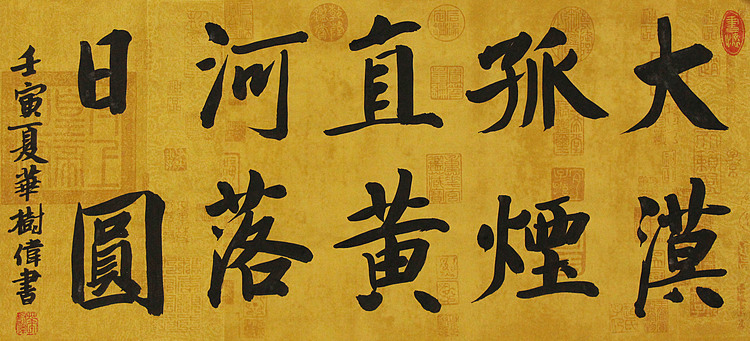 大漠
孤煙
直黄
河落
日圓
壬寅夏華樹偉書